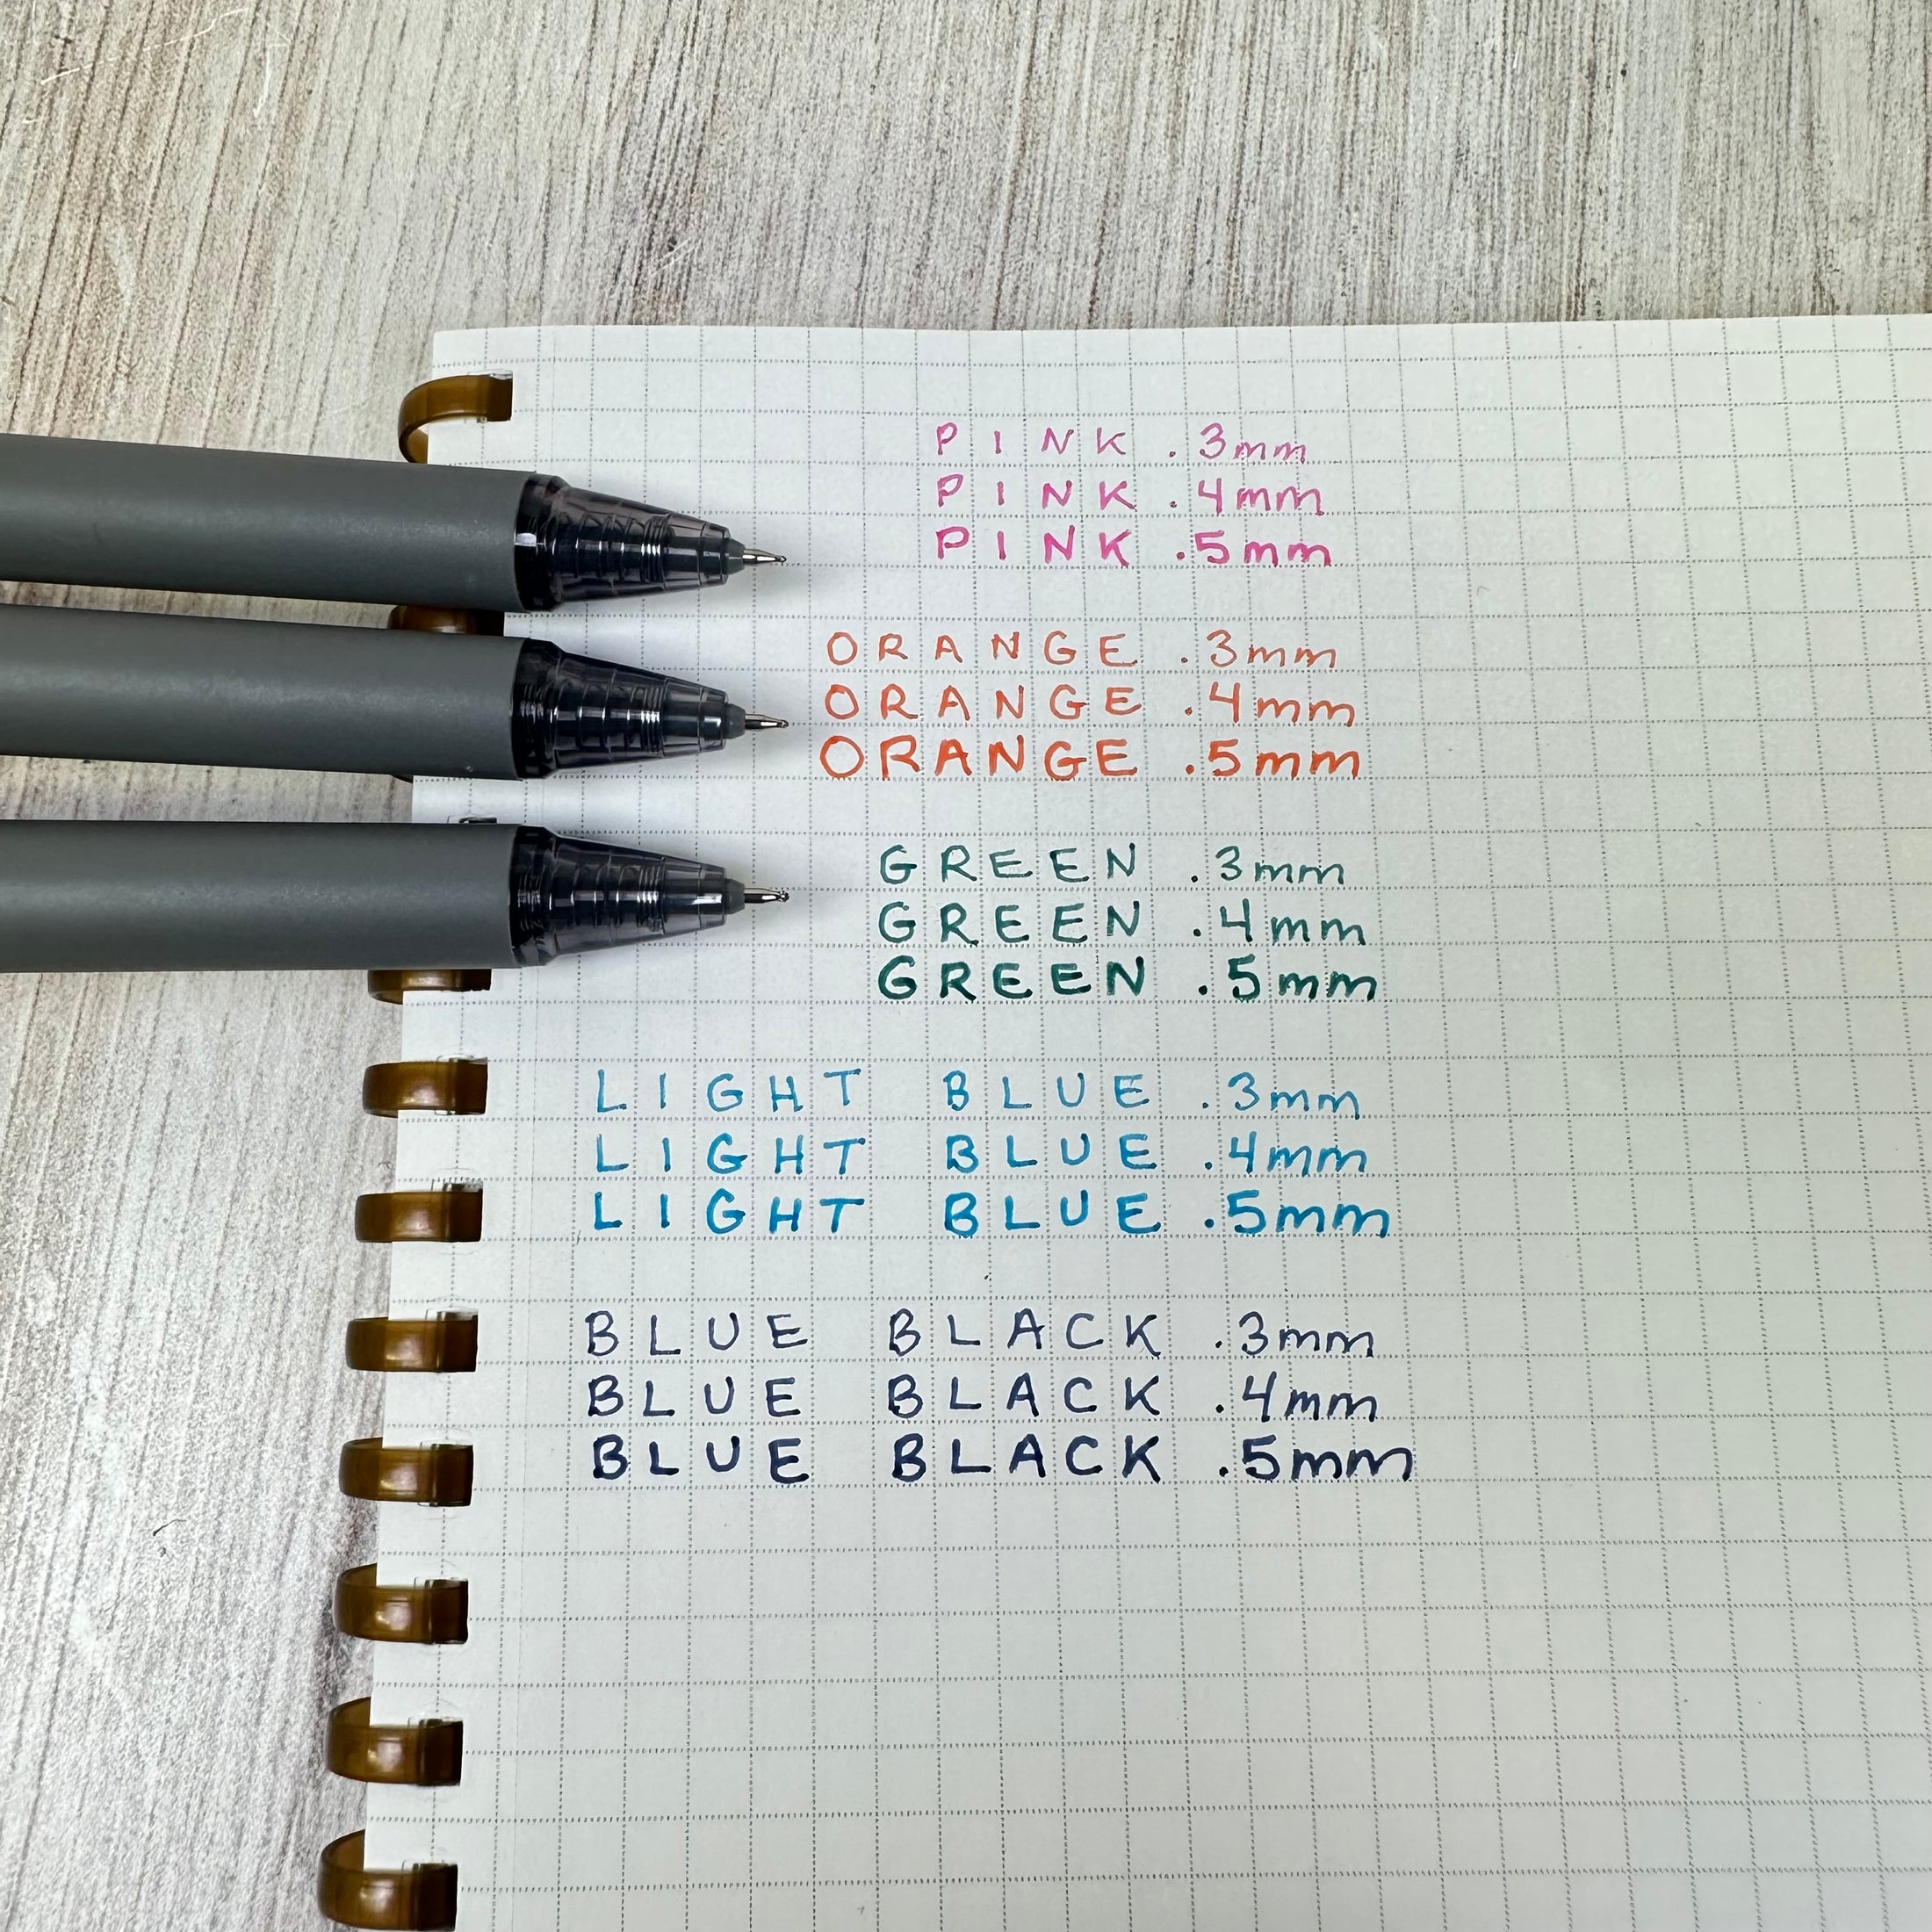 PINK .3mm
PINK .4mm
PINK .5mm
ORANGE .3mm
ORANGE .4mm
ORANGE .5mm
GREEN .3mm
GREEN .4mm
GREEN .5mm
LIGHT BLUE .3mm
LIGHT BLUE .4mm
LIGHT BLUE .5mm
BLUE BLACK .3mm
BLUE BLACK .4mm
BLUE BLACK .5mm